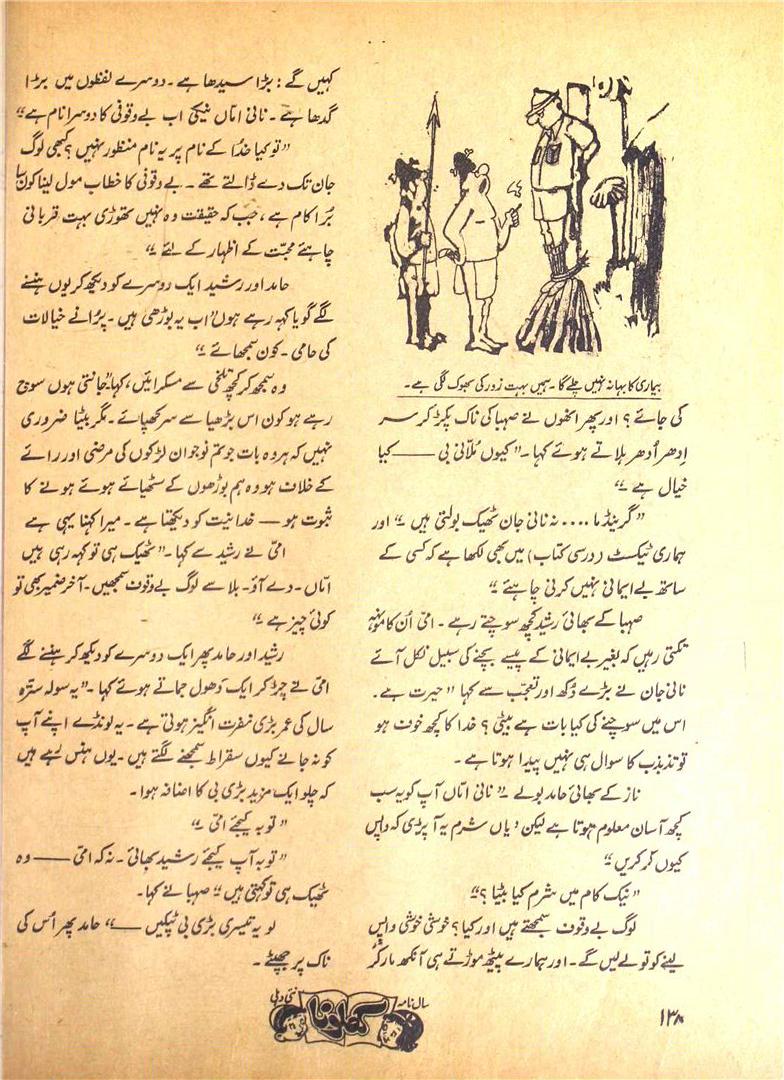 بیماری کا بہانہ نہیں چلے گا۔ ہمیں بہت زور کی بھوک لگی ہے۔
کی جائے؟ اور پھر انھوں نے صہبا کی ناک پکڑ کر سر
اِدھر اُدھر ہلاتے ہوئے کہا۔ ”کیوں مُلّانی بی —— کیا
خیال ہے۔“
”گرینڈ ما .... نہ نانی جان ٹھیک بولتی ہیں۔“ اور
ہماری ٹیکسٹ (درسی کتاب) میں بھی لکھا ہے کہ کسی کے
ساتھ بے ایمانی نہیں کرنی چاہئے۔“
صہبا کے بھائی رشید کچھ سوچتے رہے۔ امّی اُن کا مونہہ
تکتی رہیں کہ بغیر بے ایمانی کے پیسے بچنے کی سبیل نکل آئے
نانی جان نے بڑے دُکھ اور تعجّب سے کہا ”حیرت ہے۔
اس میں سوچنے کی کیا بات ہے بیٹی؟ خدا کا کچھ خوف ہو
تو تذبذب کا سوال ہی نہیں پیدا ہوتا ہے۔
ناز کے بھائی حامد بولے۔ ”نانی امّاں آپ کو یہ سب
کچھ آسان معلوم ہوتا ہے لیکن یاں شرم یہ آ پڑی کہ واپس
کیوں کر کریں“
”نیک کام میں شرم کیا بیٹا؟“
لوگ بے وقوف سمجھتے ہیں اور کیا؟ خوشی خوشی واپس
لینے کو تو لے لیں گے۔ اور ہمارے پیٹھ موڑتے ہی آنکھ مار کر
کہیں گے: بڑا سیدھا ہے۔ دوسرے لفظوں میں بڑا
گدھا ہے۔ نانی امّاں نیکی اب بے وقوفی کا دوسرا نام ہے“
”تو کیا خدا کے نام پر یہ نام منظور نہیں؟ کبھی لوگ
جان تک دے ڈالتے تھے۔ بے وقوفی کا خطاب مول لینا کون سا
بُرا کام ہے، جب کہ حقیقت وہ نہیں تھوڑی بہت قربانی
چاہئے محبّت کے اظہار کے لئے۔“
حامد اور رشید ایک دوسرے کو دیکھ کر یوں ہنسنے
لگے گویا کہہ رہے ہوں ”اب یہ بوڑھی ہیں۔ پرانے خیالات
کی حامی۔ کون سمجھائے۔“
وہ سمجھ کر کچھ تلخی سے مسکرائیں، کہا ”جانتی ہوں سوچ
رہے ہو کون اس بڑھیا سے سر کھپائے۔ مگر بیٹا ضروری
نہیں کہ ہر وہ بات جو تم نوجوان لڑکوں کی مرضی اور رائے
کے خلاف ہو وہ ہم بوڑھوں کے سٹھیائے ہوئے ہونے کا
ثبوت ہو — خدا نیت کو دیکھتا ہے۔ میرا کہنا یہی ہے
امّی نے رشید سے کہا۔ ”ٹھیک ہی تو کہہ رہی ہیں
امّاں۔ دے آؤ۔ بلا سے لوگ بے وقوف سمجھیں۔ آخر ضمیر بھی تو
کوئی چیز ہے۔“
رشید اور حامد پھر ایک دوسرے کو دیکھ کر ہنسنے لگے
امّی نے چڑ کر ایک دَھول جماتے ہوئے کہا۔ ”یہ سولہ سترہ
سال کی عمر بڑی نفرت انگیز ہوتی ہے۔ یہ لونڈے اپنے آپ
کو نہ جانے کیوں سقراط سمجھنے لگتے ہیں۔ یوں ہنس رہے ہیں
کہ چلو ایک مزید بڑی بی کا اضافہ ہوا۔
”توبہ کیجئے امّی۔“
”توبہ آپ کیجئے رشید بھائی۔ نہ کہ امّی —— وہ
ٹھیک ہی تو کہتی ہیں“ صہبا نے کہا۔
لو یہ تیسری بڑی بی ٹپکیں —“ حامد پھر اُس کی
ناک پر جھپٹے۔
سال نامہ کھلونا نئی دہلی
۱۳۸